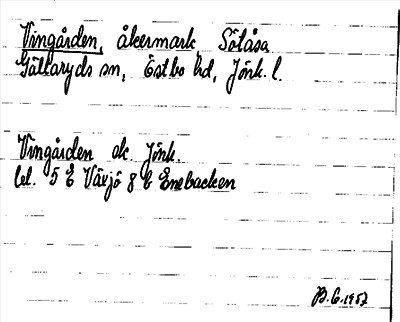 Vingården, åkermark, Sölåsa
Gällaryds sn, Östbo hd, Jönk. l.
Vingården ak Jönk.
bl. 5 E Växjö 8 b Enebacken
B.G. 1957